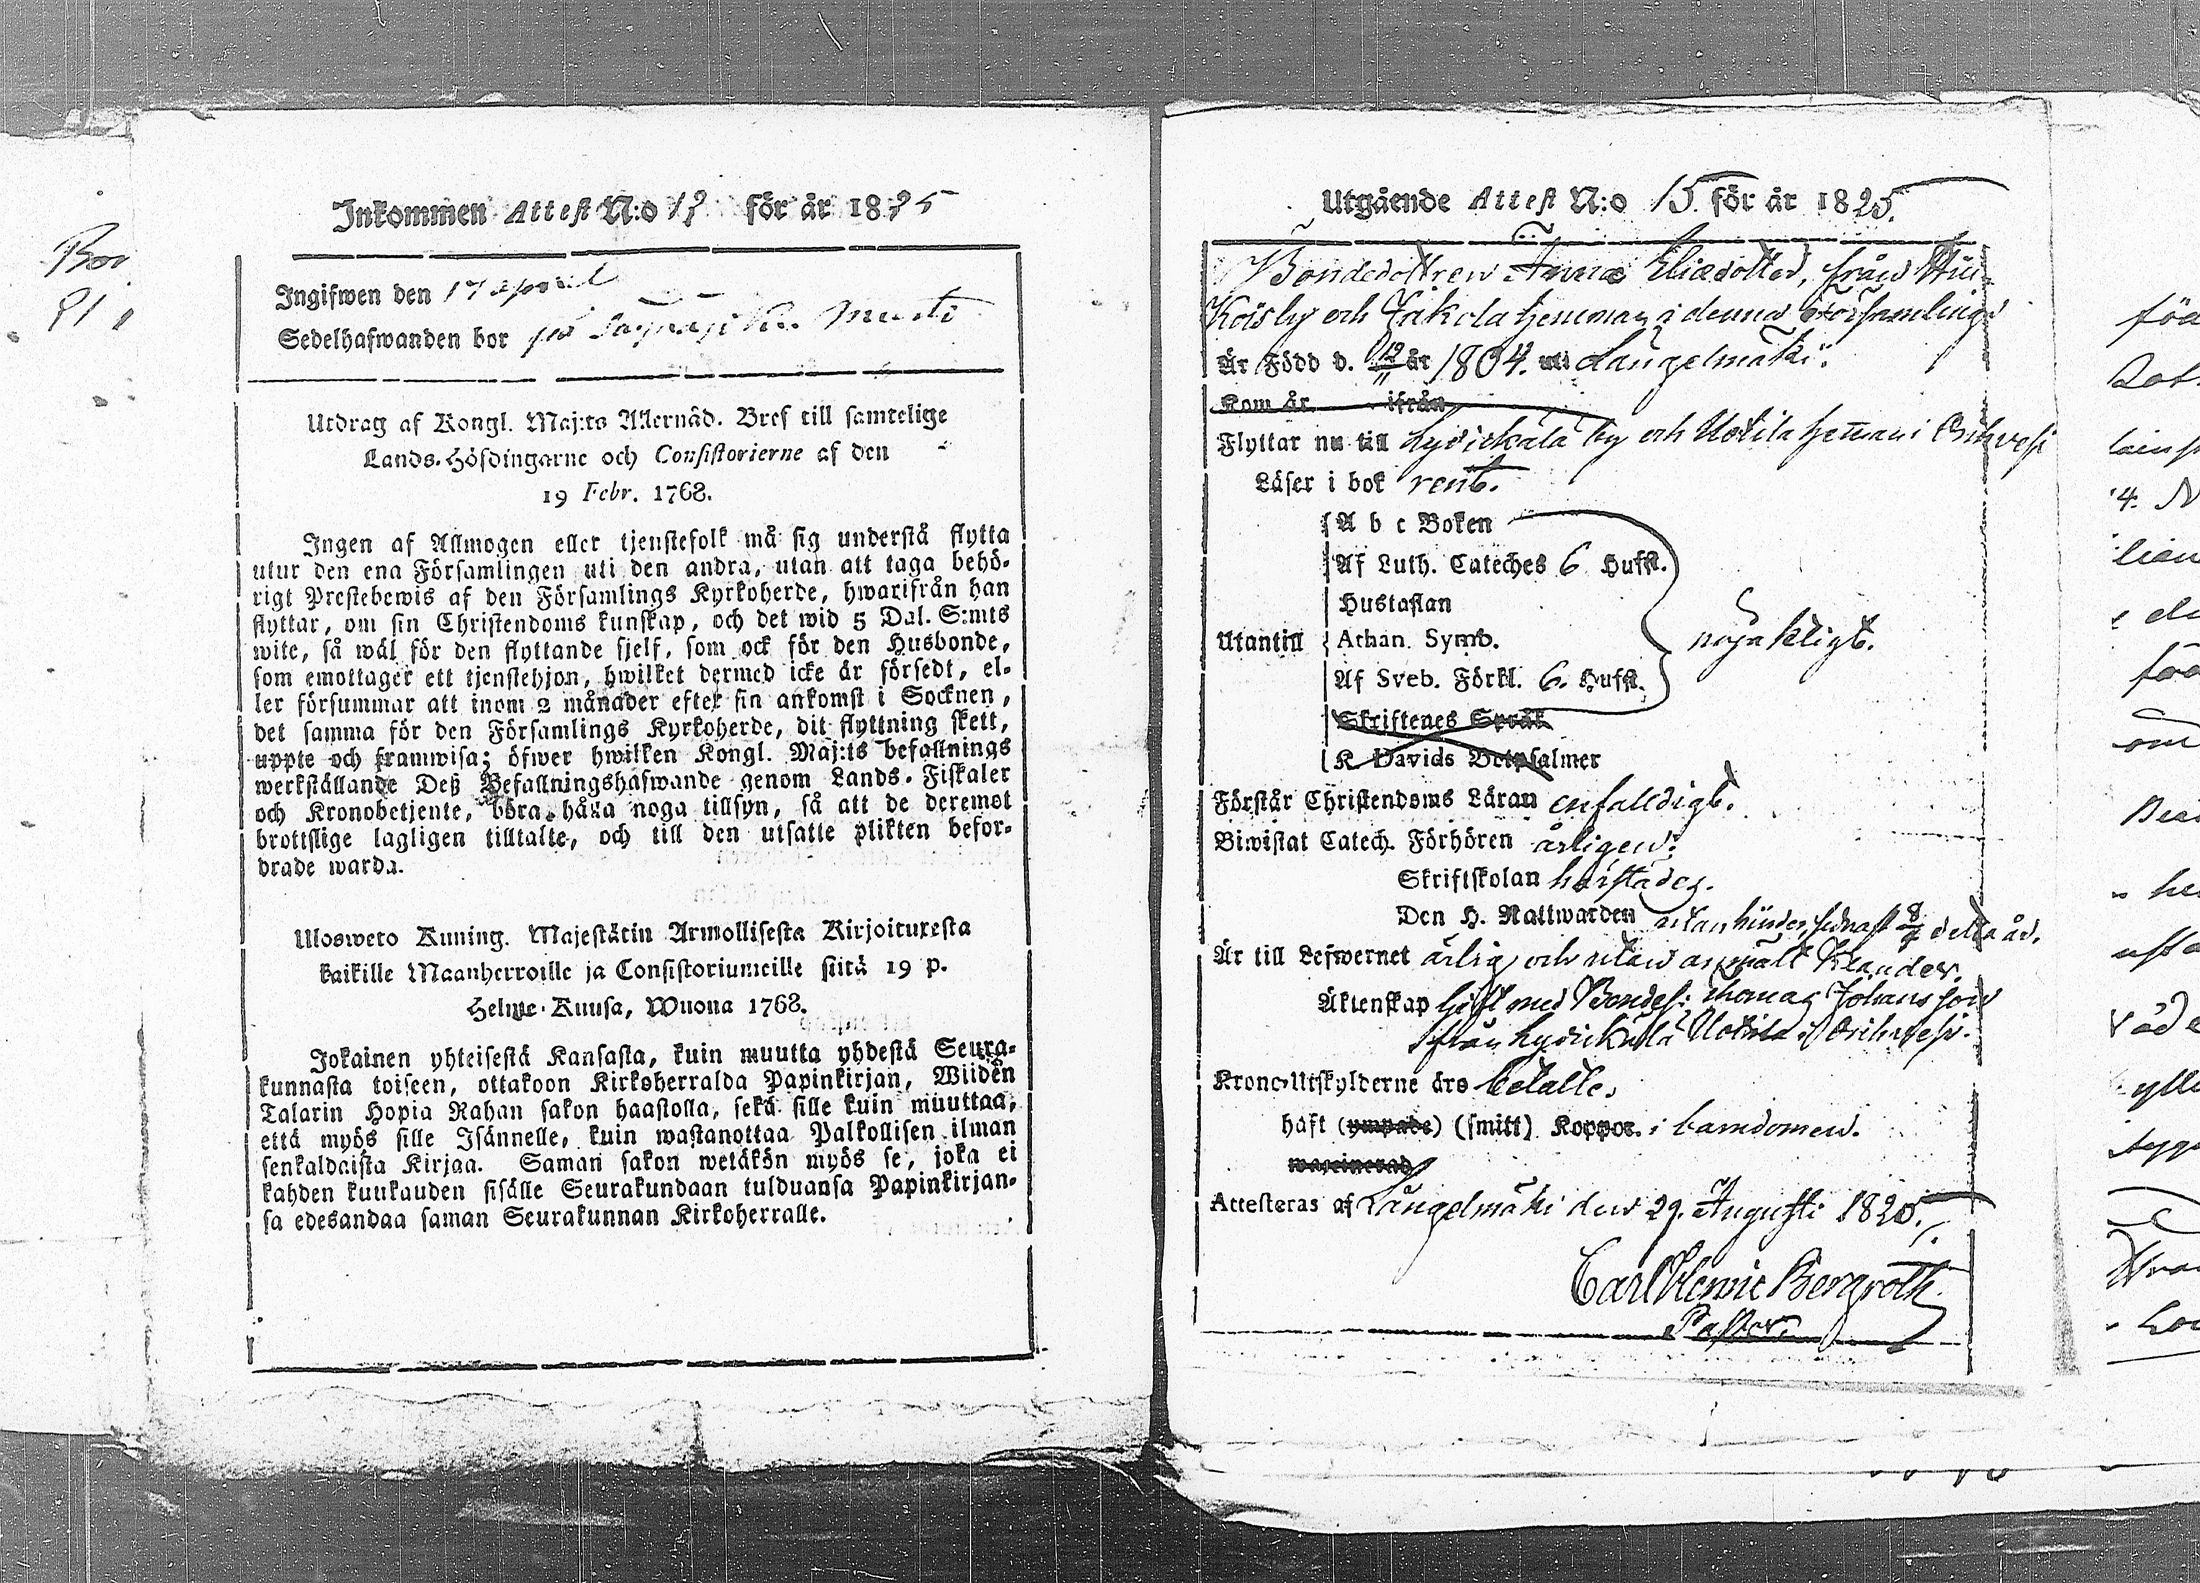 Inkommen Attest N:o 12 för år 1825
Ingifwen den 17 april
Sedelhafwanden bor på
Utdrag af Kongl. Maj:ts Allernåd. Bref till samtelige
Lands-Höfdingarne och Consistorierne af den
19 Febr. 1768.
Ingen af Allmogen eller tjenstefolk må sig understå flytta
utur den ena Församlingen uti den andra, utan att taga behö-
rigt Prestebewis af den Församlings Kyrkoherde, hwarifrån han
flyttar, om sin Christendoms kunskap, och det wid 5 Dal. S:mts
wite, så wäl för den flyttande sjelf, som ock för den Husbonde,
som emottager ett tjenstehjon, hwilket dermed icke är försedt, el-
ler försummar att inom 2 månader efter sin ankomst i Socknen,
det samma för den Församlings Kyrkoherde, dit flyttning skett,
uppte och framwisa; öfwer hwilken Kongl. Maj:ts befallnings
werkställande Deß Befallningshafwande genom Lands-Fiskaler
och Kronobetjente, böra hålla noga tillsyn, så att de deremot
brottslige lagligen tilltalte, och till den utsatte plikten befor-
drade warda.
Ulosweto Kuning. Majestätin Armollisesta Kirjoituxesta
kaikille Maanherroille ja Consistoriumeille siitä 19 p.
Helme-Kuusa, Wuona 1768.
Jokainen yhteisestä Kansasta, kuin muutta yhdestä Seura-
kunnasta toiseen, ottakoon Kirkoherralda Papinkirjan, Wiiden
Talarin Hopia Rahan sakon haastolla, sekä sille kuin muuttaa,
että myös sille Isännelle, kuin wastanottaa Palkollisen ilman
senkaldaista Kirjaa. Saman sakon wetäkön myös se, joka ei
kahden kuukauden sisälle Seurakundaan tulduansa Papinkirjan-
sa edesandaa saman Seurakunnan Kirkoherralle.
Utgående Attest N:o 15. för år 1825.
Bondedottren Anna Eliædotter, från
Koisby och Jakola hemman i denna Församling
Är Född d. 12/11 år 1804. uti Längelmäki.
Kom år ifrån
Flyttar nu till by och Uotila heman i Orihvesi
Läser i bok rent.
A b c Boken
Af Luth. Cateches 6 Hufst.
Hustaflan
Utantill Athan. Symb. nöjaktigt.
Af Sveb. Förkl. 6. Hufst.
Skriftenes Språk
K Davids Botpsalmer
Förstår Christendoms Läran enfalldigt.
Biwistat Catech. Förhören årligen.
Skriftskolan härstädes.
Den H. Nattwarden utan hinder, sednast 8/7 detta år.
Är till Lefwernet ärlig och utan anmält klander.
Äktenskap Gift med Bondes: Thomas Johansson
ifrån Uotila i Orihvesi.
Krono-Utskylderne äro betalte.
haft (ympade) (smitt) Koppor. i barndomen.
waccinerad
Attesteras af Längelmäki den 29. Augusti 1825.
Carl Henric Bergroth
Pastor.